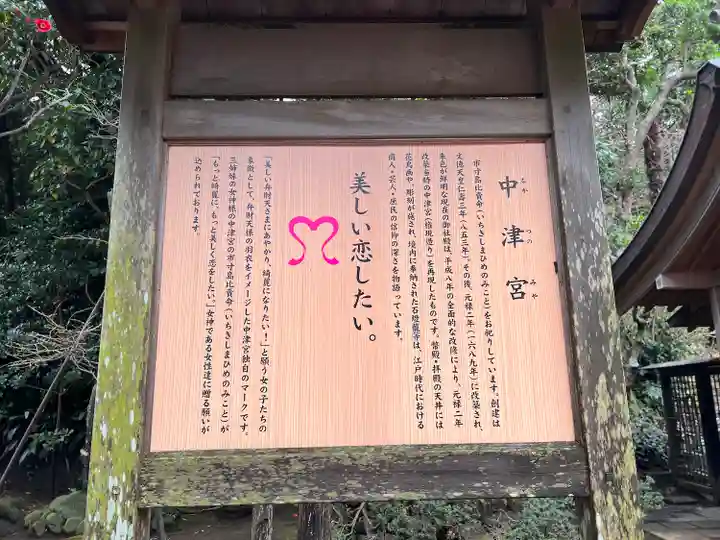 中津宮
なか つの みや
市寸島比賣命(いちきしまひめのみこと)をお祀りしています。創建は
文徳天皇仁壽三年(八五三年)。その後、元禄二年(一六八九年)に改築され、
朱色が鮮明な現在の御社殿は、平成八年の全面的な改修により、元禄二年
改築当時の中津宮(権現造り)を再現したものです。幣殿・拝殿の天井には
花鳥画や、彫刻が施され、境内に奉納された石燈籠等は、江戸時代における
商人・芸人・庶民の信仰の深さを物語っています。
美しい恋したい。
「美しい弁財天さまにあやかり、綺麗になりたい!」と願う女の子たちの
象徴として、弁財天様の羽衣をイメージした中津宮独自のマークです。
三姉妹の女神様の中津宮の市寸島比賣命(いちきしまひめのみこと)が
「もっと綺麗に、もっと美しく恋をしたい。」女神である女性達に贈る願いが
込められております。